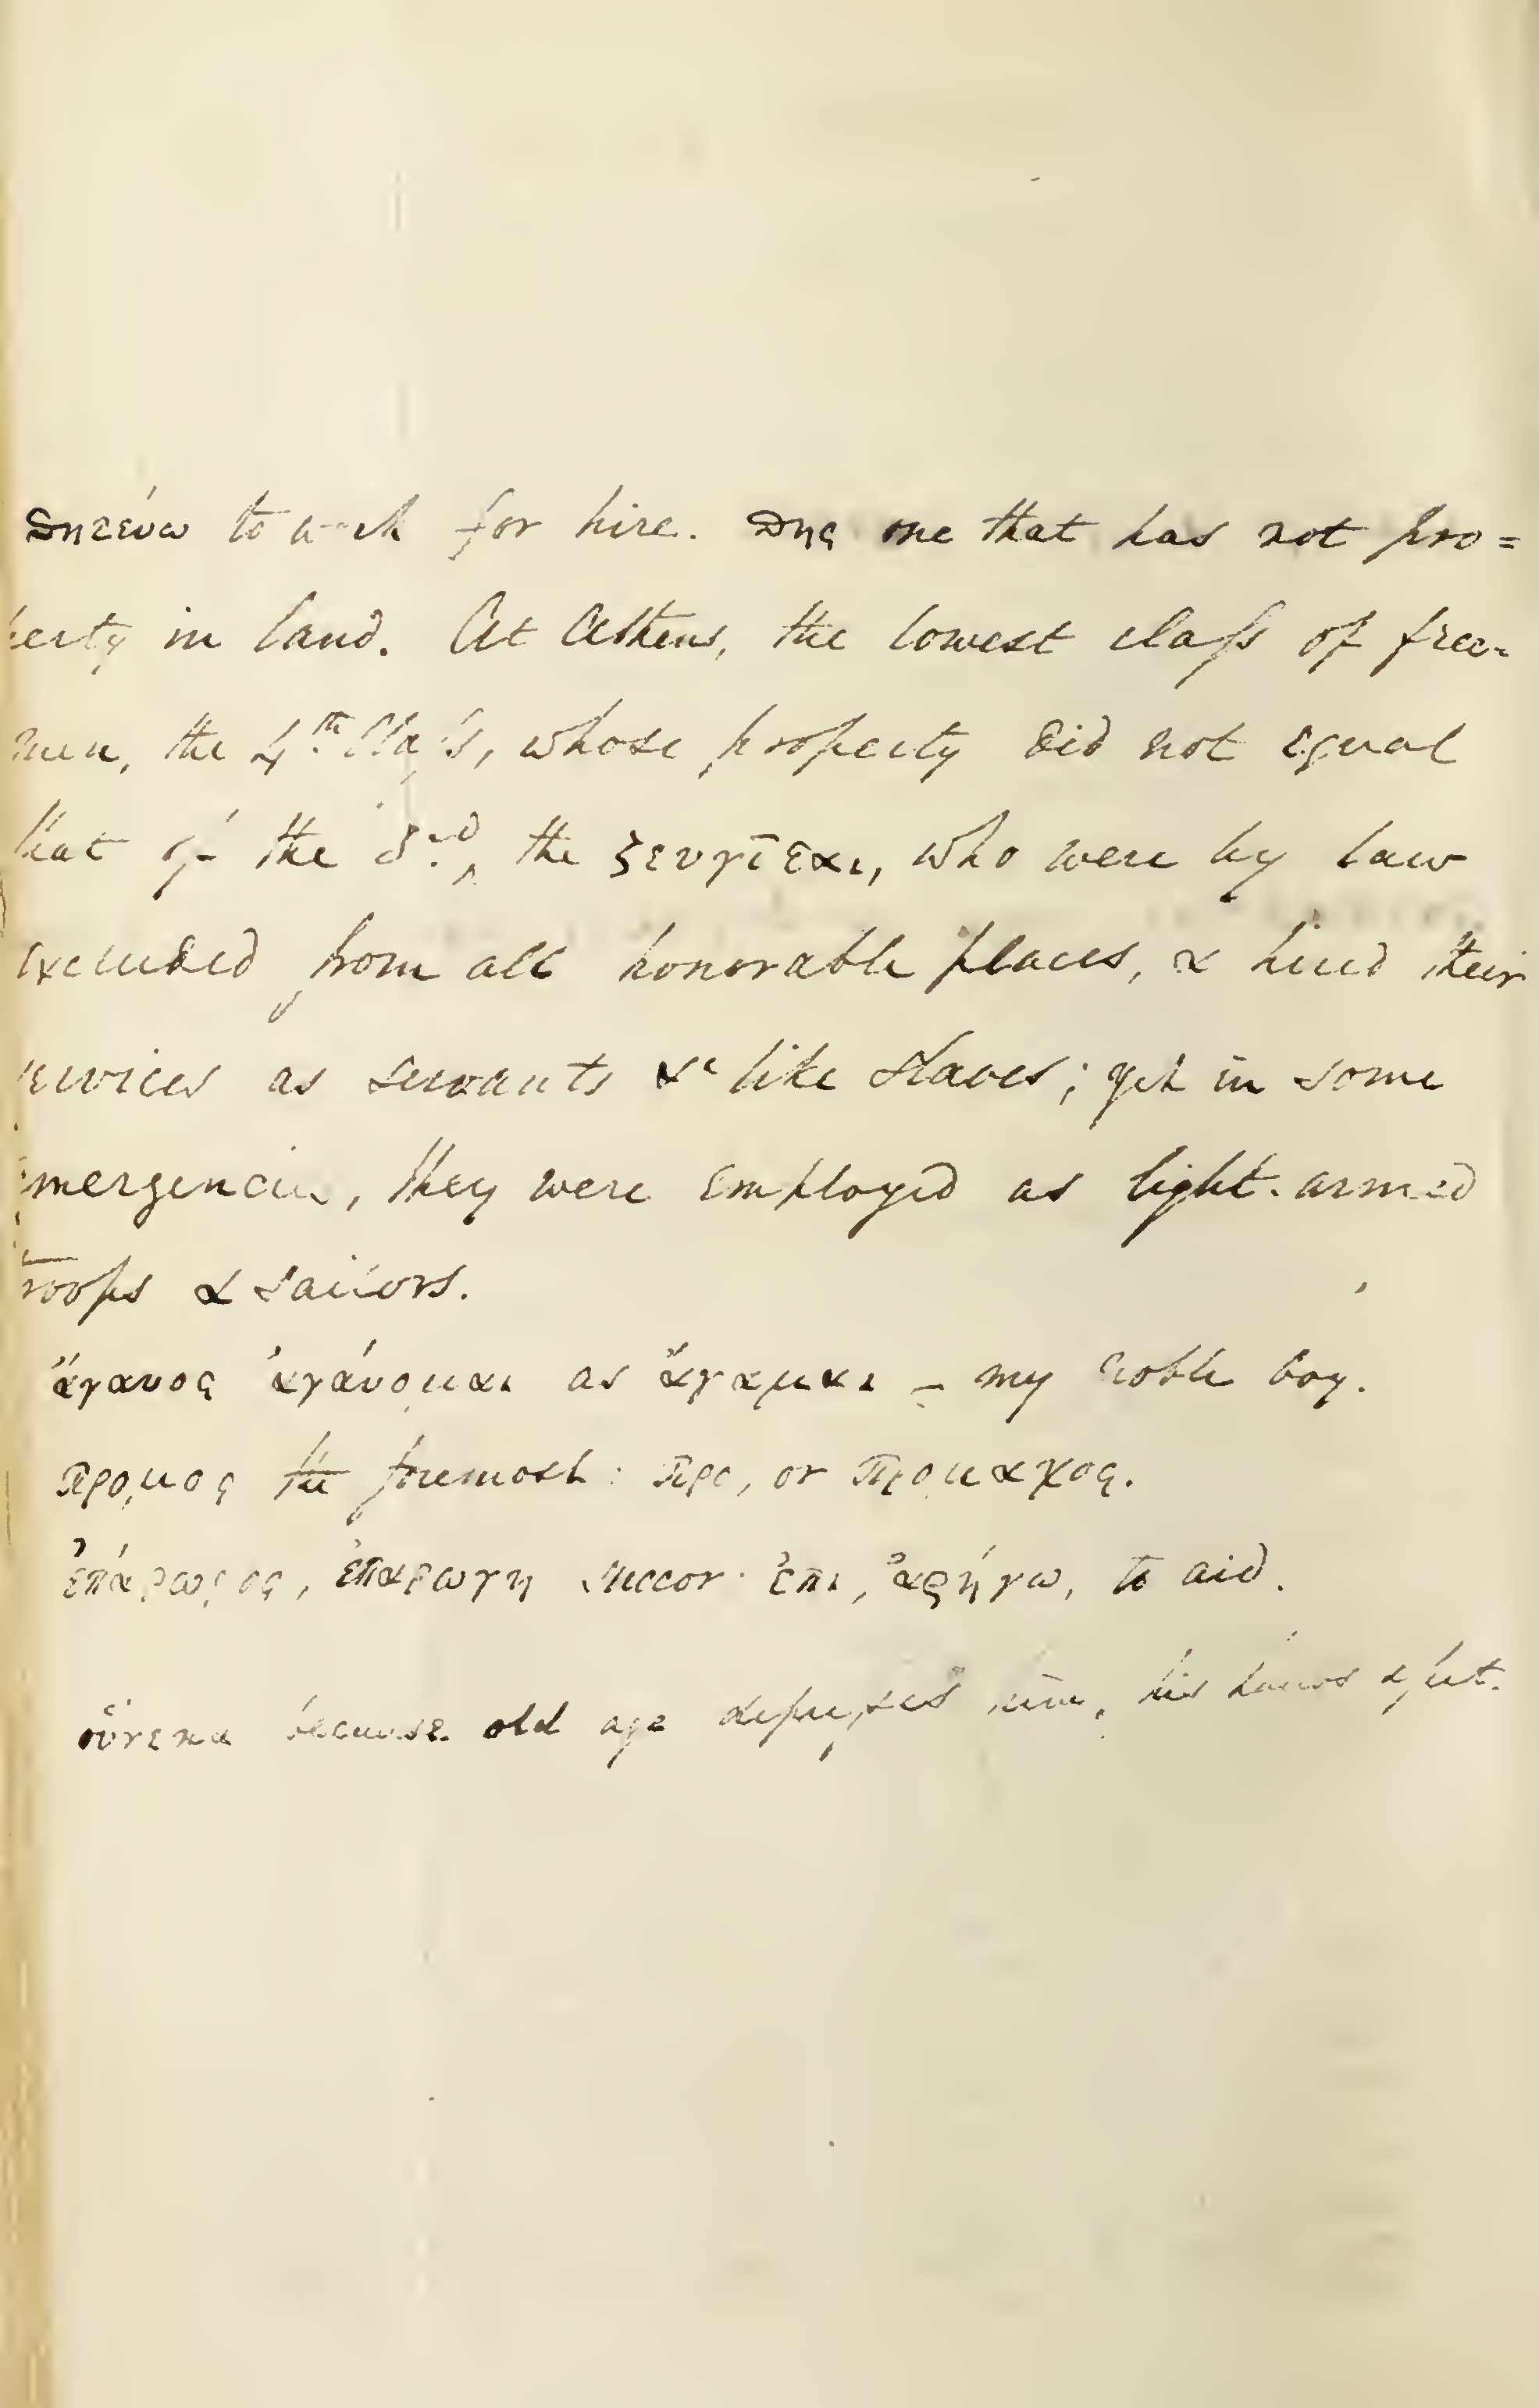 θητεύω to work for hire. θης one that has not pro=
perty in land. At Athens, the lowest class of free-
men, the 4th Class, whose property did not equal
that of the 3rd, the ζευγιται, who were by law
excluded from all honorable places, & hired their
services as servants &c like slaves; yet in some
emergencies, they were employed as light-armed
troops & sailors.
ἄγαυος ἀγάυομαι as ἄγαμαι - my noble boy.
προμος the foremost: προ, or προμαχος.
ἐπάρωγος, ἐπαρωγη succor. ἐπι, ἀρήγω, to aid.
οὕνεκα because old age depresses him, his hands & feet.